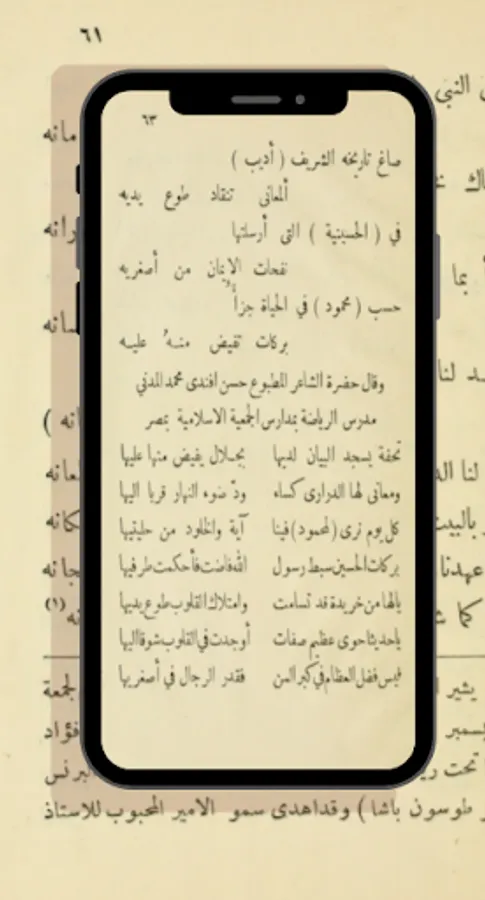 ٦١
٦٣
صاغ تاريخه الشريف ( أديب )
ألمعانى تنقاد طوع يديه
في ( الحسينية ) التى أرسلتها
نفحات الايمان من أصغريه
حسب ( محمود ) في الحياة جزاً
بركات تفيض منه عليه
وقال حضرة الشاعر المطبوع حسن افندى محمد المدني
مدرس الرياضة بمدارس الجمعية الاسلامية بمصر
تحفة يسجد البيان لديها بجلال يفيض منها عليها
ومعانى لها الدرارى كساء ودّ ضوء النهار قربا اليها
كل يوم نرى (لمحمود) فينا آية والخلود من حليتيها
بركات الحسين سبط رسول الله فاضت فأحكمت طرفيها
يالها من خريدة قد تسامت وامتلاك القلوب طوع يديها
ياحديثا حوى عظيم صفات أوجدت في القلوب شوقا اليها
ليس فضل العظام في كبر السن فقدر الرجال في أصغريها
النبي
مانه
بما
لنا
لنا
بالبيت
عهدنا
كما
(١)
يشير
لجمعة
فؤاد
تحت
البرنس
طوسون باشا ) وقد اهدى سمو الامير المحبوب للاستاذ